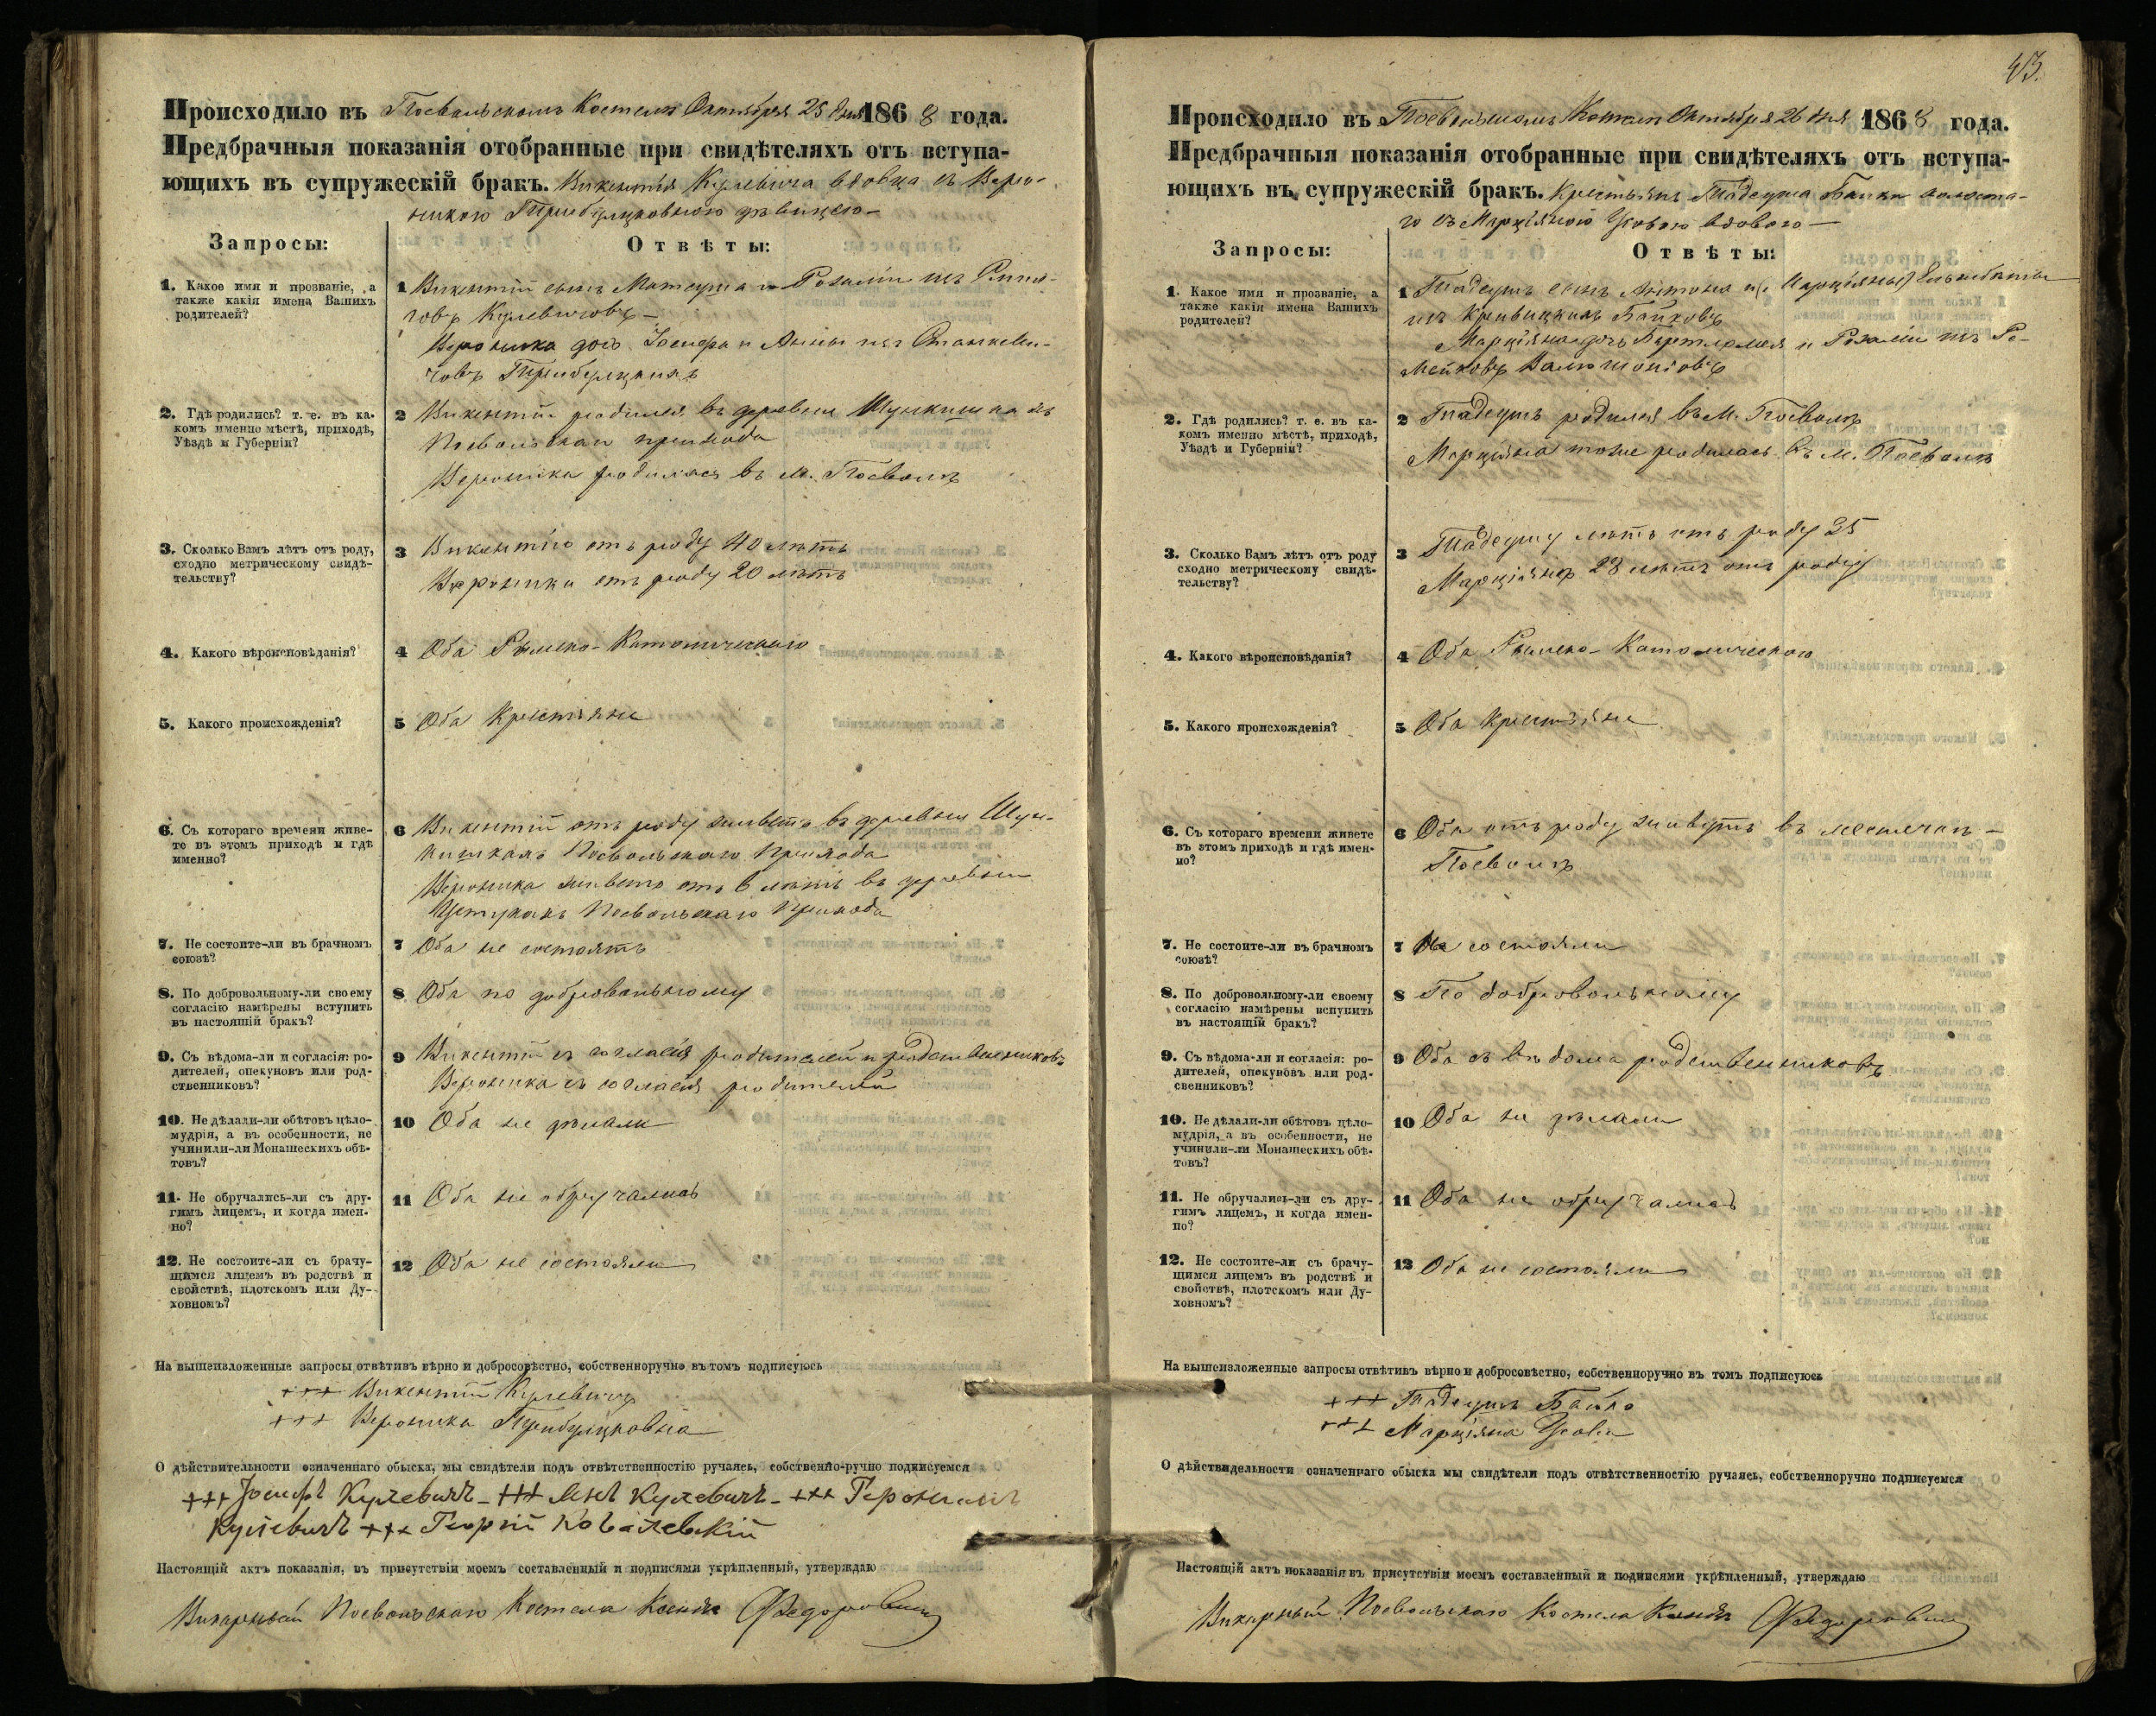 Происходило въ Посвольскомъ Костелѣ Октября 25 дня 1868 года.
Предбрачныя показанія отобранные при свидѣтеляхъ отъ вступа-
ющихъ въ супружескій бракъ. Викентія Кулевича вдовца съ Веро-
никою дѣвицею
Запросы:
Отвѣты:
1. Какое имя и прозваніе, а
также какія имена Вашихъ
родителей?
1 Викентій сынъ Матеуша и Розаліи изъ
Кулевичовъ
Вероника дочь Іосифа и Анны изъ Станкеви-
човъ
2. Гдѣ родились? т. е. въ ка-
комъ именно мѣстѣ, приходѣ,
Уѣздѣ и Губерніи?
2 Викентій родился въ деревни
Посвольскаго прихода
Вероника родилась въ м. Посволѣ
3. Сколько Вамъ лѣтъ отъ роду,
сходно метрическому свидѣ-
тельству?
3 Викентію отъ роду 40 лѣтъ
Вероники отъ роду 20 лѣтъ
4. Какого вѣроисповѣданія?
4 Оба Римско-Католическаго
5. Какого происхожденія?
5 Оба Крестьяне
6. Съ котораго времени живе-
те въ этомъ приходѣ и гдѣ
именно?
6 Викентій отъ роду живетъ въ деревни Шун-
кишкахъ Посвольскаго Прихода
Вероника живетъ отъ 6 лѣтъ въ деревни
Посвольскаго Прихода
7. Не состоите-ли въ брачномъ
союзѣ?
7 Оба не состоятъ
8. По добровольному-ли своему
согласію намѣрены вступить
въ настоящій бракъ?
8 Оба по добровольному
9. Съ вѣдома-ли и согласія: ро-
дителей, опекуновъ или род-
ственниковъ?
9 Викентій съ согласія родителей и родственниковъ
Вероника съ согласія родителей
10. Не дѣлали-ли обѣтовъ цѣло-
мудрія, а въ особенности, не
учинили-ли Монашескихъ обѣ-
товъ?
10 Оба не дѣлали
11. Не обручались-ли съ дру-
гимъ лицемъ, и когда имен-
но?
11 Оба не обручались
12. Не состоите-ли съ брачу-
щимся лицемъ въ родствѣ и
свойствѣ, плотскомъ или Ду-
ховномъ?
12 Оба не состояли
На вышеизложенные запросы отвѣтивъ вѣрно и добросовѣстно, собственноручно въ томъ подписуюсь
+++ Викентій Кулевичъ
+++ Вероника
О дѣйствительности означеннаго обыска, мы свидѣтели подъ отвѣтственностію ручаясь, собственно-ручно подписуемся
+++ Іосифъ Кулевичъ - +++ Кулевичъ - +++ Геронимъ
Кулевичъ +++ Георгій Ковалевскій
Настоящій актъ показанія, въ присутствіи моемъ составленный и подписями укрѣпленный, утверждаю
Викарный Посвольскаго Костела Ксендз Федоровичъ
43.
Происходило въ Посвольскомъ Костелѣ Октября 26 дня 1868 года.
Предбрачныя показанія отобранные при свидѣтеляхъ отъ вступа-
ющихъ въ супружескій бракъ. Крестьянъ Тадеуша Байки холоста-
го съ Марціяною Усовою вдовою
Запросы:
Отвѣты:
1. Какое имя и прозваніе, а
также какія имена Вашихъ
родителей?
1 Тадеушъ сынъ Антона и
изъ Кривицкихъ Байковъ
Марціяна дочь Бартломея и Розаліи изъ Ро-
мейковъ
2. Гдѣ родились? т. е. въ ка-
комъ именно мѣстѣ, приходѣ,
Уѣздѣ и Губерніи?
2 Тадеушъ родился въ м. Посволѣ
Марціяна тоже родилась въ м. Посволѣ
3. Сколько Вамъ лѣтъ отъ роду
сходно метрическому свидѣ-
тельству?
3 Тадеушу лѣтъ отъ роду 25
Марціянѣ 28 лѣтъ отъ роду
4. Какого вѣроисповѣданія?
4 Оба Римско-Католическаго
5. Какого происхожденія?
5 Оба Крестьяне
6. Съ котораго времени живете
въ этомъ приходѣ и гдѣ имен-
но?
6 Оба отъ роду живутъ въ местечкѣ
Посволѣ
7. Не состоите-ли въ брачномъ
союзѣ?
7 Не состояли
8. По добровольному-ли своему
согласію намѣрены вступить
въ настоящій бракъ?
8 По добровольному
9. Съ вѣдома-ли и согласія: ро-
дителей, опекуновъ или род-
свенниковъ?
9 Оба съ вѣдома родственниковъ
10. Не дѣлали-ли обѣтовъ цѣло-
мудрія, а въ особенности, не
учинили-ли Монашескихъ обѣ-
товъ?
10 Оба не дѣлали
11. Не обручались-ли съ дру-
гимъ лицемъ, и когда имен-
но?
11 Оба не обручались
12. Не состоите-ли съ брачу-
щимся лицемъ въ родствѣ и
свойствѣ, плотскомъ или Ду-
ховномъ?
12 Оба не состояли
На вышеизложенные запросы отвѣтивъ вѣрно и добросовѣстно, собственноручно въ томъ подписуюсь
+++ Тадеушъ Байко
+++ Марціяна Усова
О дѣйствидельности означеннаго обыска мы свидѣтели подъ отвѣтственностію ручаясь, собственноручно подписуемся
Настоящій актъ показанія въ присутствіи моемъ составленный и подписями укрѣпленный, утверждаю
Викарный Посвольскаго Костела Ксендз Федоровичъ